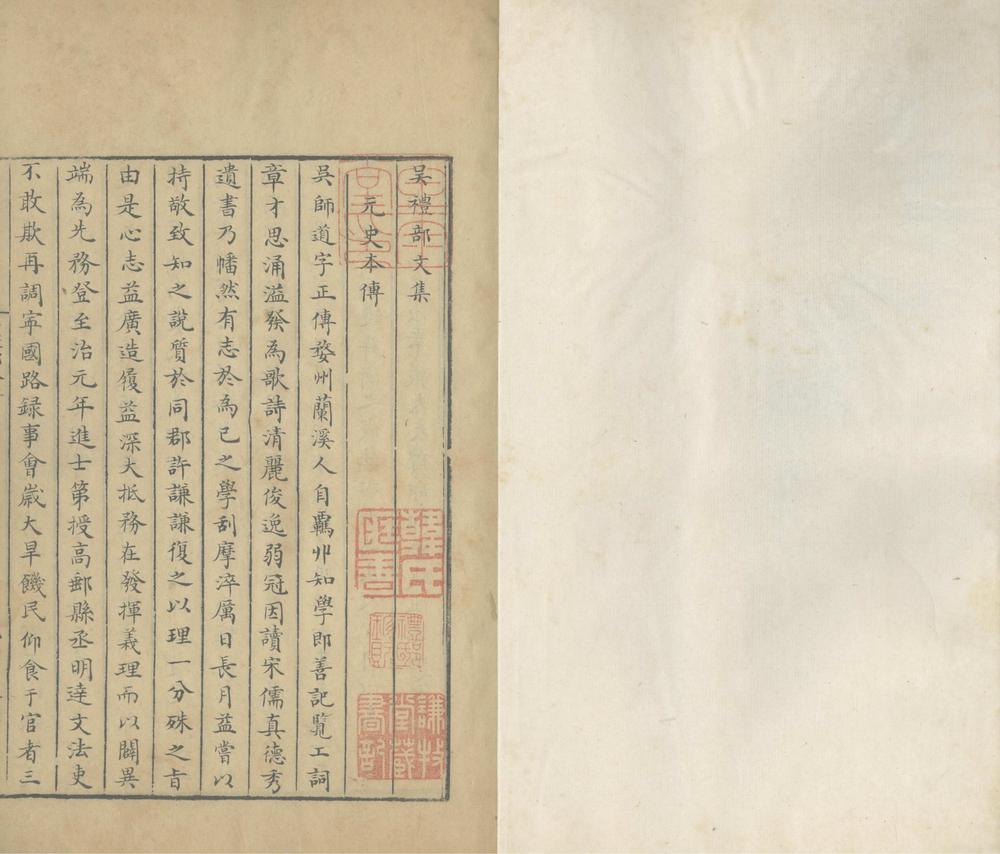 吳禮部文集
元史本傳
吳師道字正傳婺州蘭溪人自羈丱知學即善記覽工詞
章才思涌溢發為歌詩清麗俊逸弱冠因讀宋儒真德秀
遺書乃幡然有志於為己之學刮摩淬厲日長月益嘗以
持敬致知之說質於同郡許謙謙復之以理一分殊之旨
由是心志益廣造履益深大抵務在發揮義理而以闢異
端為先務登至治元年進士第授高郵縣丞明達文法吏
不敢欺再調寜國路録事會歲大旱饑民仰食于官者三
韓氏
藏書
謙牧堂藏書記